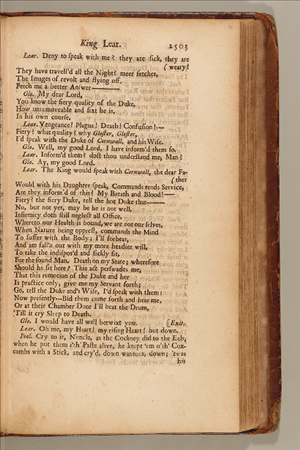 King Lear. 2503
Lear. Deny to speak with me? they are sick, they are
(weary?
They have travell'd all the Night? meer fetches,
The Images of revolt and flying off.
Fetch me a better Answer——
Glo. My dear Lord,
You know the fiery quality of the Duke,
How unremoveable and fixt he is,
In his own course.
Lear. Vengeance! Plague! Death! Confusion!—
Fiery? what quality? why Gloster, Gloster,
I'd speak with the Duke of Cornwall, and his Wife.
Glo. Well, my good Lord, I have inform'd them so.
Lear. Inform'd them? dost thou understand me, Man?
Glo. Ay, my good Lord.
Lear. The King would speak with Cornwall, the dear Fa-
(ther
Would with his Daughter speak, Commands tends Service,
Are they inform'd of this? My Breath and Blood!——
Fiery? the fiery Duke, tell the hot Duke that——
No, but not yet, may be he is not well,
Infirmity doth still neglect all Office,
Whereto our Health is bound, we are not our selves,
When Nature being opprest, commands the Mind
To suffer with the Body; I'll forbear,
And am fall'n out with my more headier will,
To take the indispos'd and sickly fit,
For the sound Man. Death on my State; wherefore
Should he sit here? This act perswades me,
That this remotion of the Duke and her
Is practice only, give me my Servant forth;
Go, tell the Duke and's Wife, I'd speak with them:
Now presently--Bid them come forth and hear me,
Or at their Chamber Door I'll beat the Drum,
'Till it cry Sleep to Death.
Glo. I would have all well betwixt you. [Exit.
Lear. Oh me, my Heart! my rising Heart! but down.
Fool. Cry to it, Nuncle, as the Cockney did to the Eels,
when he put them i'th' Paste alive, he knapt 'em o'th' Cox-
combs with a Stick, and cry'd, down wantons, down; 'twas
his